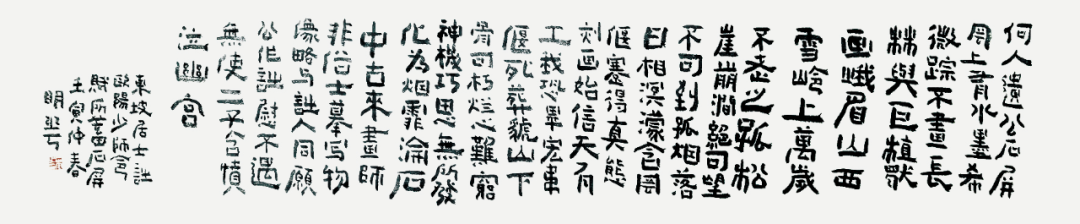 何人遺公石屏
風上有水墨希
微踪不畫長
林與巨植獨
畫峨眉山西
雪嶺上萬歲
不老之孤松
崖崩澗絕可望
不可到孤烟落
日相溟濛含風
偃蹇得真態
刻画始信天有
工我恐畢宏韋
偃死葬虢山下
骨可朽爛心難窮
神機巧思無所發
化為烟霏淪石
中古來畫師
非俗士摹写物
像略与詩人同願
公作詩慰不遇
無使二子含憤
泣幽宮
東坡居士詩
歐陽少師令
賦所蓄石屏
壬寅仲春
明